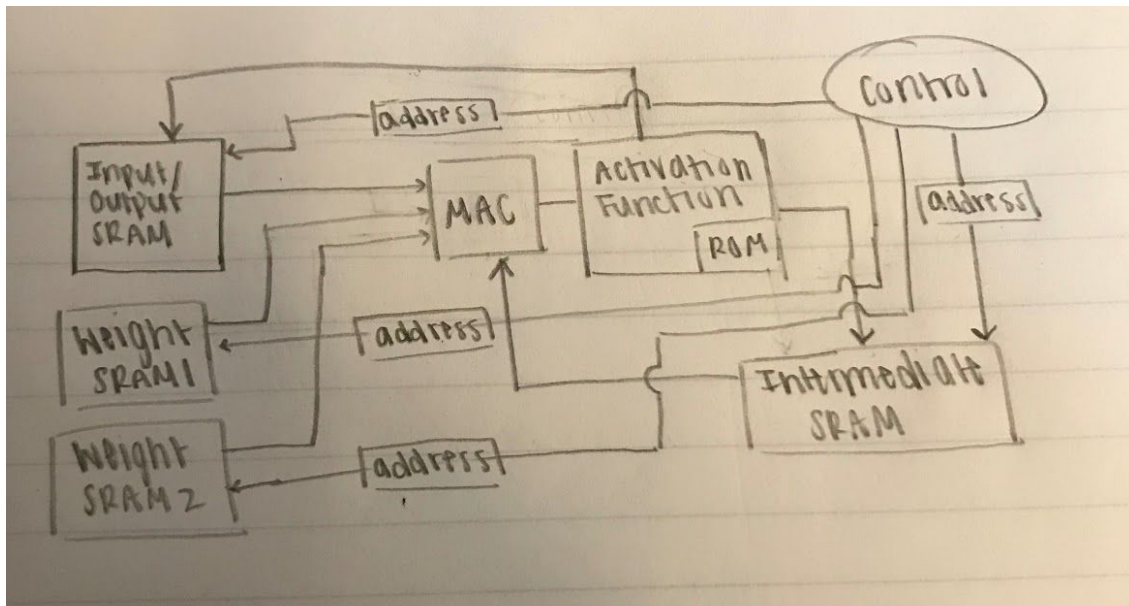 Control
address
Input/
Output
SRAM
MAC
Activation
Function
ROM
address
Weight
SRAM1
address
Intermediate
SRAM
Weight
SRAM2
address